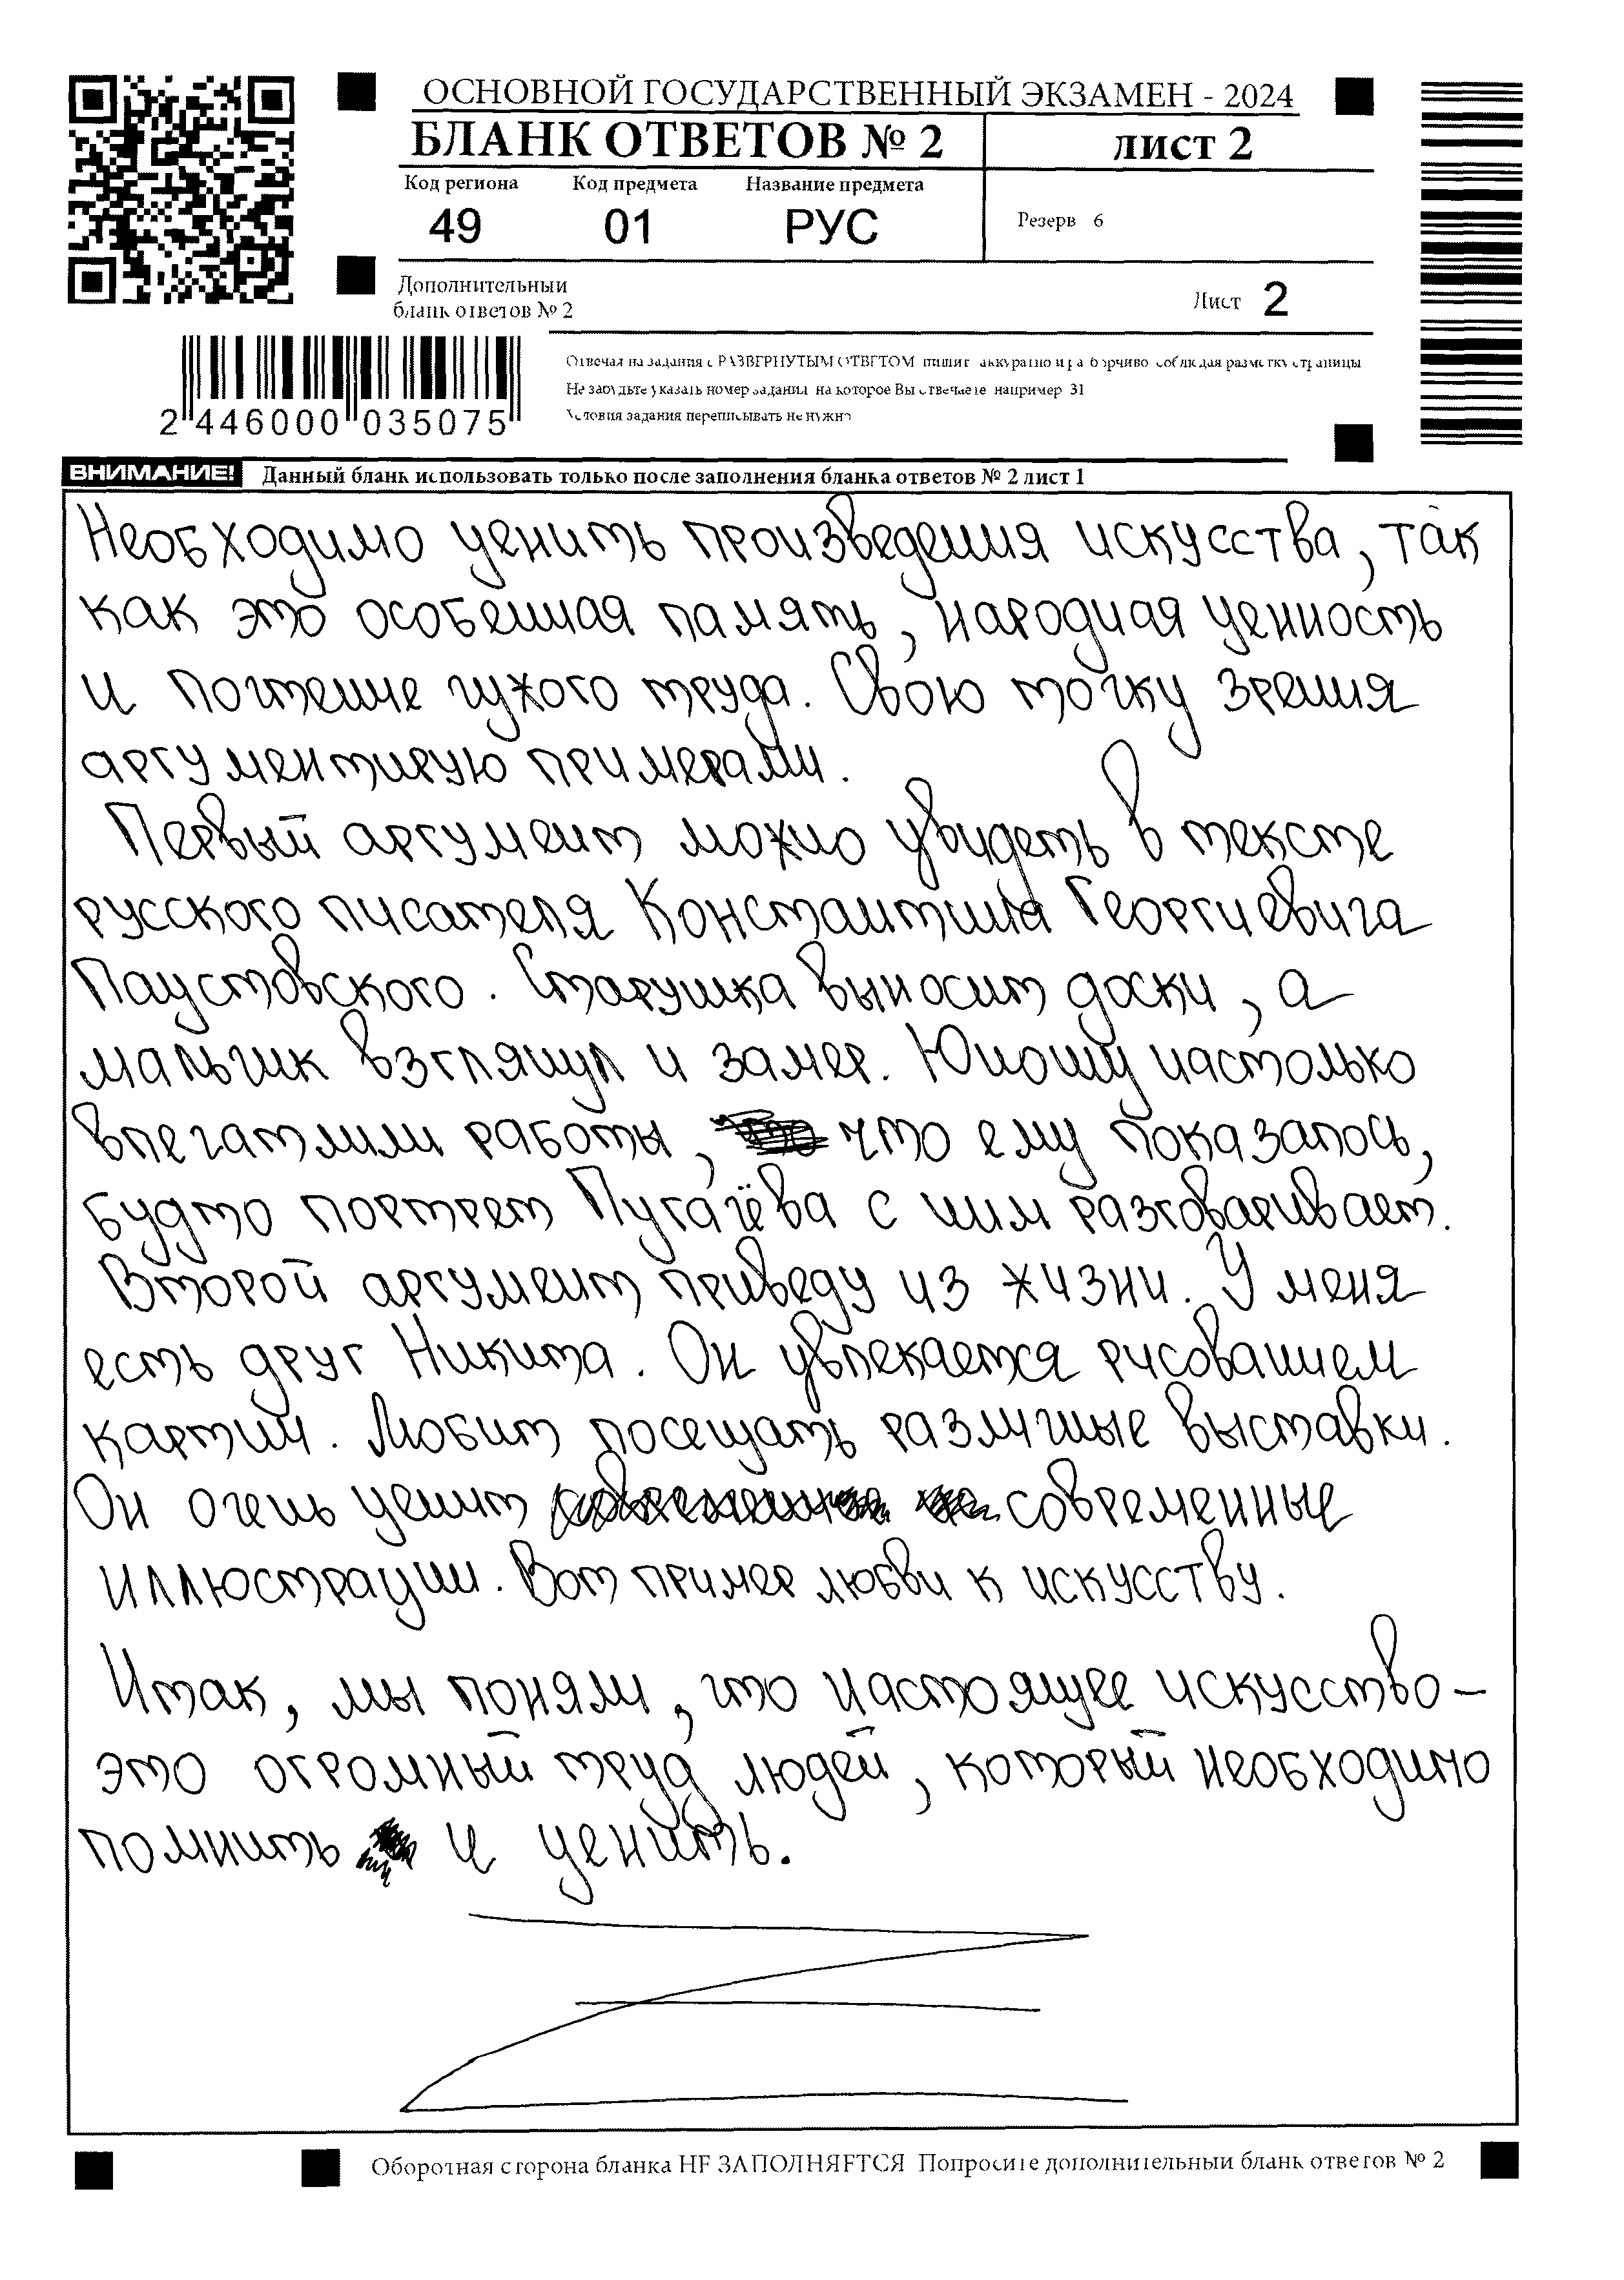 ОСНОВНОЙ ГОСУДАРСТВЕННЫЙ ЭКЗАМЕН - 2024
БЛАНК ОТВЕТОВ № 2 лист 2
Код региона Код предмета Название предмета
49 01 РУС Резерв 6
Дополнительный
бланк ответов № 2 Лист 2
Отвечая на задания с РАЗВЕРНУТЫМ ОТВЕТОМ пишите аккуратно и разборчиво соблюдая разметку страницы
Не забудьте указать номер задания на которое Вы отвечаете например 31
Условия задания переписывать не нужно
2 446000 035075
ВНИМАНИЕ! Данный бланк использовать только после заполнения бланка ответов № 2 лист 1
Необходимо ценить произведения искусства, так
как это особенная память, народная ценность
и почтение чужого труда. Свою точку зрения
аргументирую примерами.
Первый аргумент можно увидеть в тексте
русского писателя Константина Георгиевича
Паустовского. Старушка выносит доски, а
мальчик взглянул и замер. Юношу настолько
впечатлили работы, что ему показалось,
будто портрет Пугачёва с ним разговаривает.
Второй аргумент приведу из жизни. У меня
есть друг Никита. Он увлекается рисованием
картин. Любит посещать различные выставки.
Он очень ценит современные
иллюстрации. Вот пример любви к искусству.
Итак, мы поняли, что настоящее искусство-
это огромный труд людей, который необходимо
помнить и ценить.
Оборотная сторона бланка НЕ ЗАПОЛНЯЕТСЯ Попросите дополнительный бланк ответов № 2